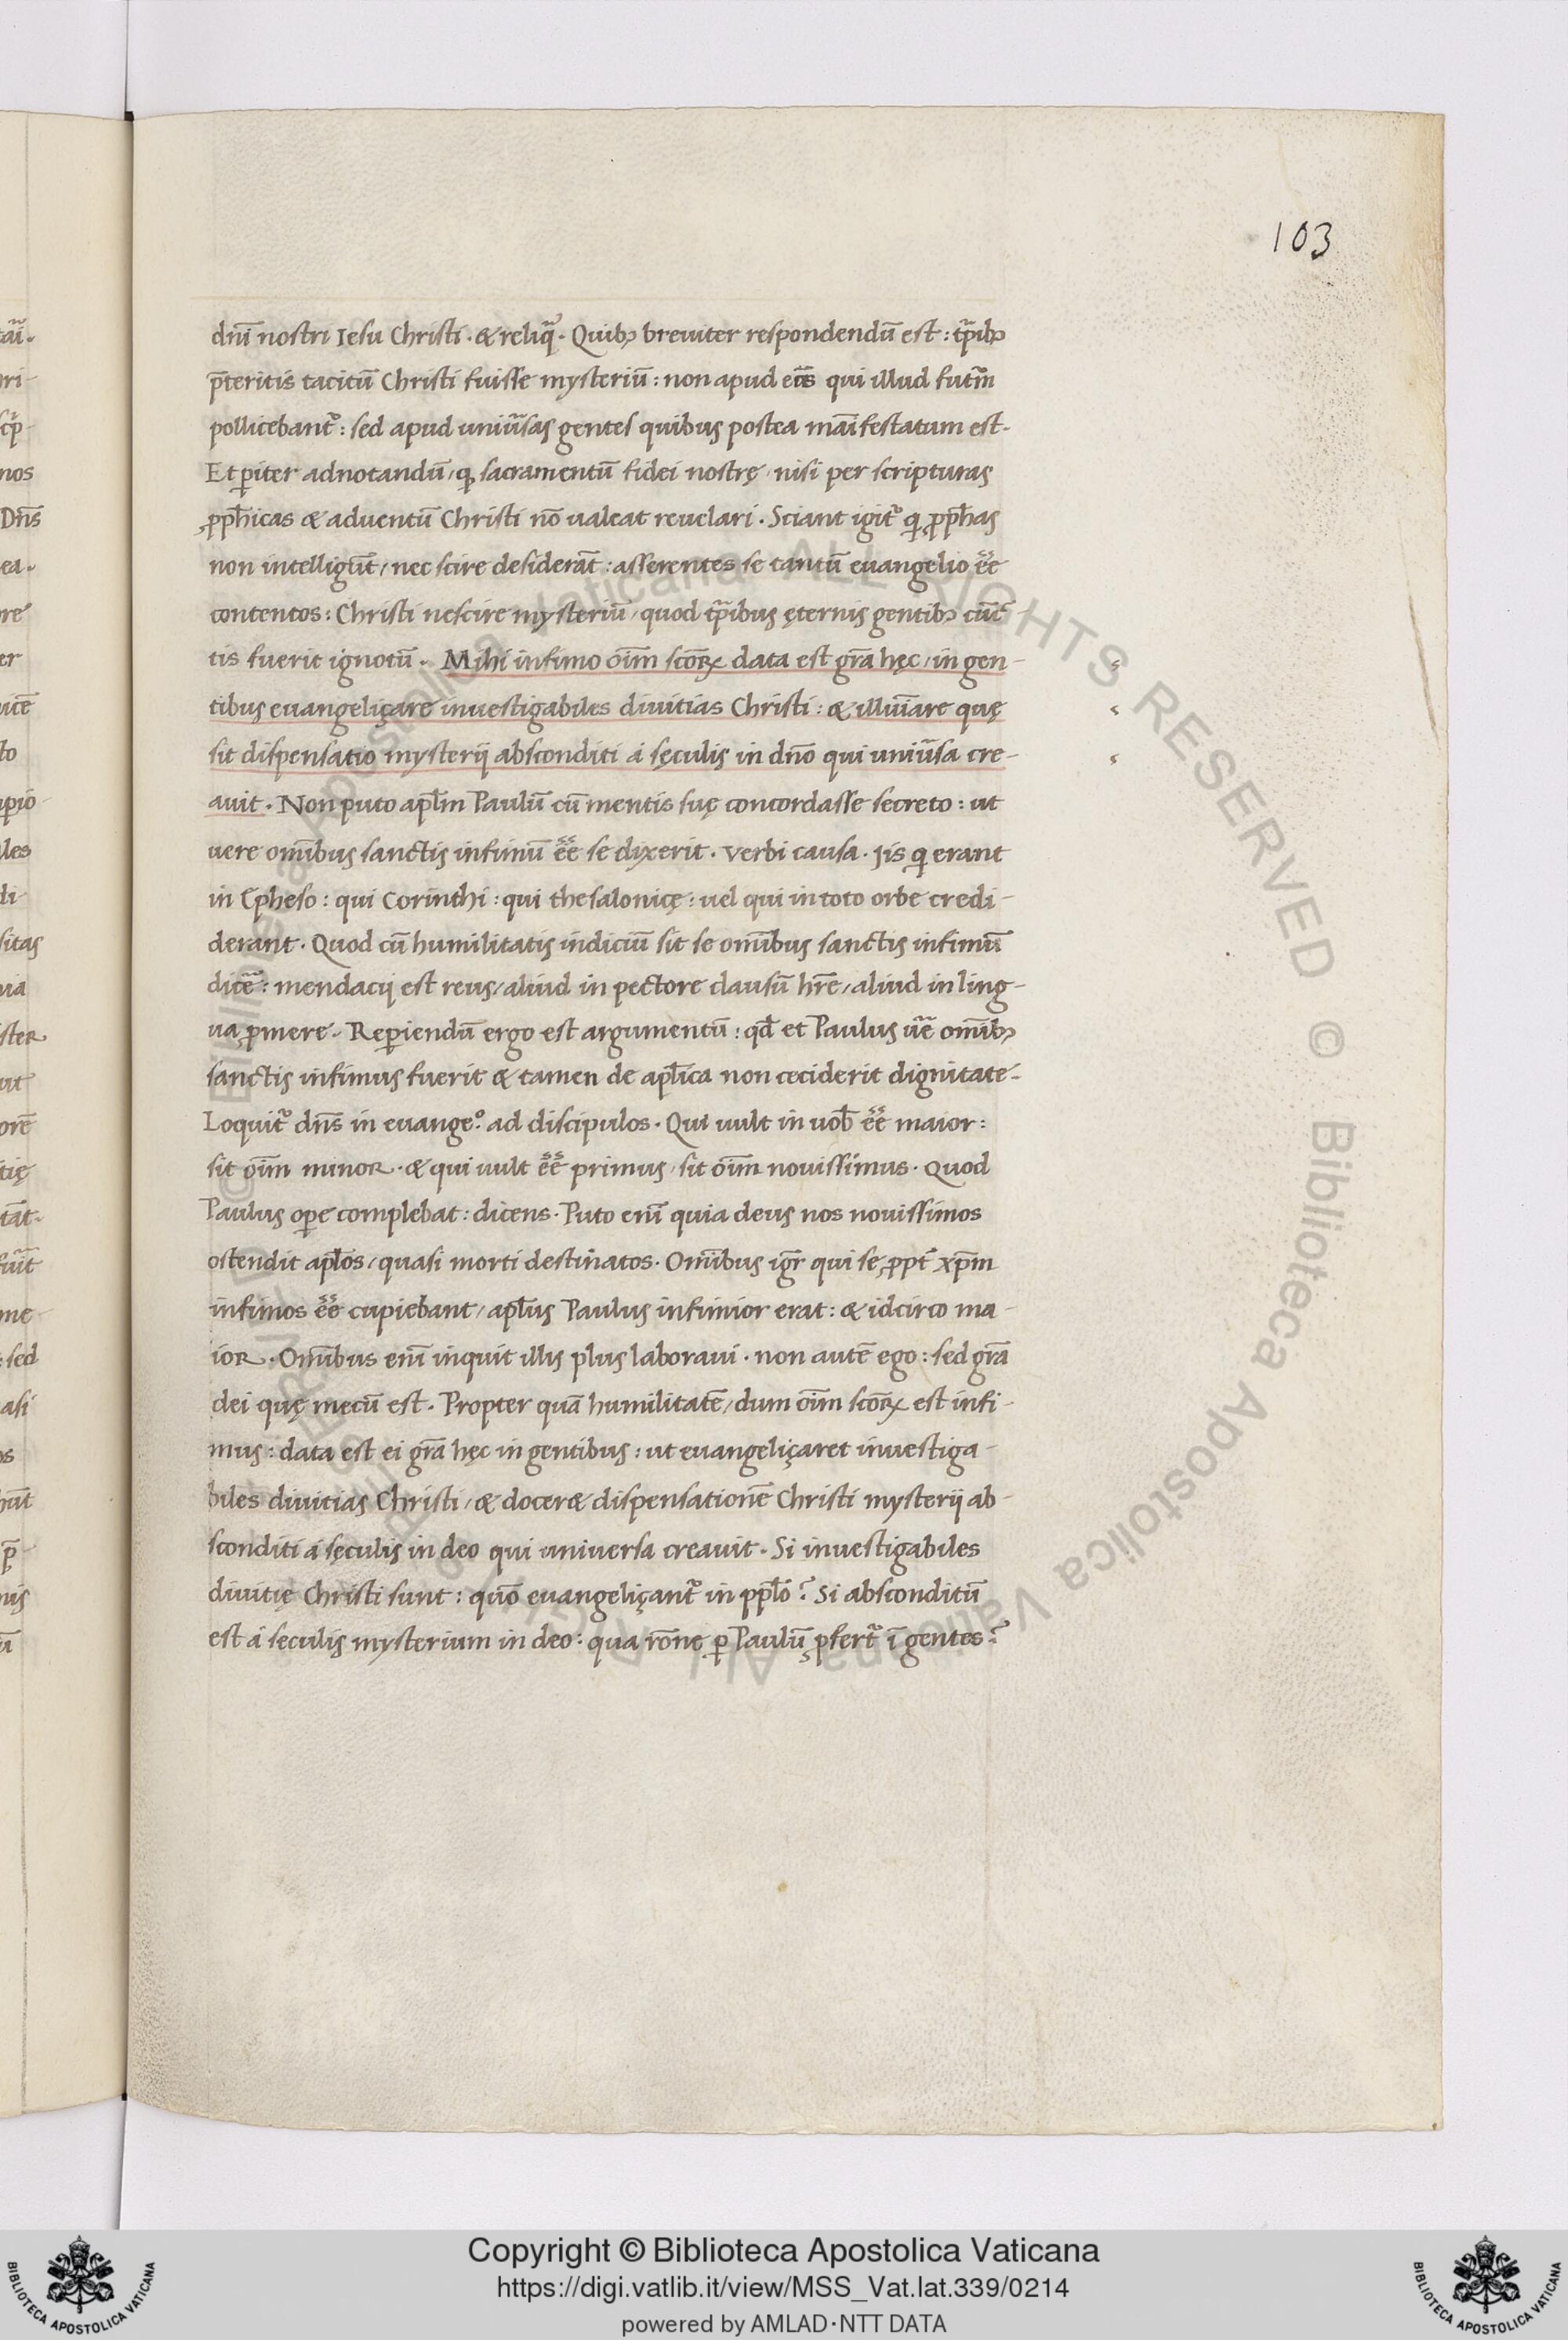 103
dnī nostri Iesu Christi · & reliq̄ · Quibꝫ breuiter respondendū est : tp̄ibꝫ
p̄teritis tacitū Christi fuisse mysteriū : non apud eos qui illud futr̄m
pollicebantr̄ : sed apud uniūsas gentes quibus postea māifestatum est ·
Et ꝑiter adnotandū / ꝙ sacramentū fidei nostrę / nisi per scripturas
ꝓph̄icas & aduentū Christi nō ualeat reuelari · Sciant igitr̄ q̇ ꝓph̄as
non intelligūt / nec scire desiderāt : asserentes se tantū euangelio ēē
contentos : Christi nescire mysteriū / quod tp̄ibus ęternis gentibꝫ cūc-
tis fuerit ignotū · Mihi infimo oīm scōꝝ data est gr̄a hęc / in gen-
tibus euangeliçare inuestigabiles diuitias Christi : & illuīare quę
sit dispensatio mysterij absconditi a sęculis in dn̄o qui uniūsa cre-
auit · Non puto apl̄m Paulū cū mentis suę concordasse secreto : ut
uere omībus sanctis infimū ēē se dixerit · Verbi causa · Jis q̇ erant
in Epheso : qui Corinthi : qui thesalonicę : uel qui in toto orbe credi-
derant · Quod cū humilitatis indiciū sit se omībus sanctis infimū
dicē : mendacij est reus / aliud in pectore clausū hr̄e / aliud in ling-
ua ꝓmere · Reꝑiendū ergo est argumentū : qd̄ et Paulus ūe omībꝫ
sanctis infimus fuerit & tamen de apl̄ica non ceciderit dignitate ·
Loquitr̄ dn̄s in euange.º ad discipulos · Qui uult in uob̄ ēē maior :
sit oīm minor · & qui uult ēē primus / sit oīm nouissimus · Quod
Paulus oꝑe complebat : dicens · Puto enī quia deus nos nouissimos
ostendit apl̄os / quasi morti destinatos · Omībus igr̄ qui se ꝓpt̄ xp̄m
infimos ēē cupiebant / apl̄us Paulus infimior erat : & idcirco ma-
ior · Omībus enī inquit illis plus laboraui · non autē ego : sed gr̄a
dei quę mecū est · Propter quā humilitatē / dum oīm scōꝝ est infi-
mus : data est ei gr̄a hęc in gentibus : ut euangeliçaret inuestiga-
biles diuitias Christi / & docer& dispensationē Christi mysterij ab-
sconditi a sęculis in deo qui universa creauit · Si inuestigabiles
diuitię Christi sunt : quō euangeliçantr̄ in ppl̄o ? Si absconditū
est a seculis mysterium in deo : qua rōne ꝑ Paulū ꝓfertr̄ ī gentes ?
Copyright © Biblioteca Apostolica Vaticana
https://digi.vatlib.it/view/MSS_Vat.lat.339/0214
powered by AMLAD·NTT DATA